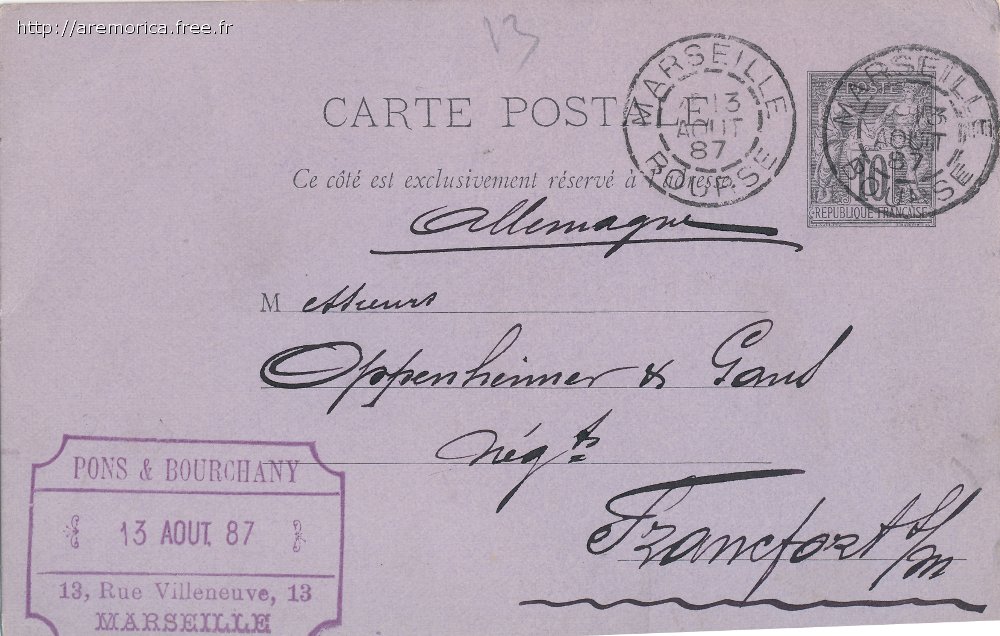 http://aremorica.free.fr
13
CARTE POSTALE
MARSEILLE
13
AOUT
87
BOURSE
MARSEILLE
13
AOUT
87
BOURSE
POSTE
10
REPUBLIQUE FRANÇAISE
Ce côté est exclusivement réservé à l'adresse.
Allemagne
Messieurs
Oppenheimer & Gaul
Négts
Francfort s/m
PONS & BOURCHANY
13 AOUT. 87
13, Rue Villeneuve, 13
MARSEILLE